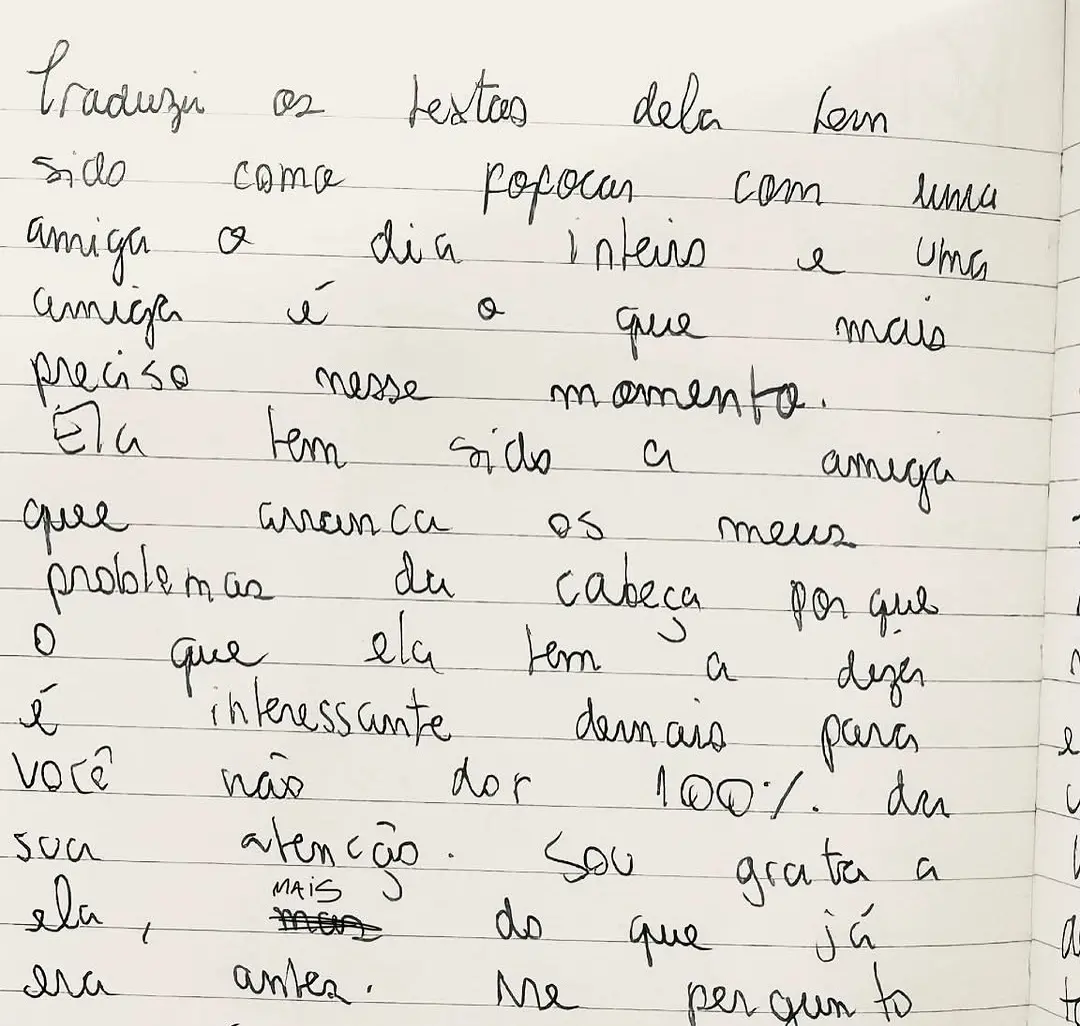 Traduzir os textos dela tem
sido como fofocar com uma
amiga o dia inteiro e uma
amiga é o que mais
preciso nesse momento.
Ela tem sido a amiga
que arranca os meus
problemas da cabeça porque
o que ela tem a dizer
é interessante demais para
você não dar 100% da
sua atenção. Sou grata a
ela, MAIS do que já
era antes. Me pergunto